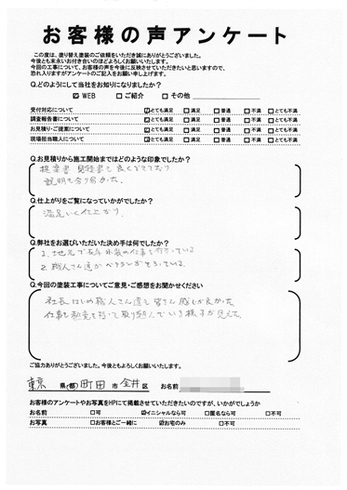 お客様の声アンケート
この度は、塗り替え塗装のご依頼をいただき誠にありがとうございました。
今後とも末永いお付き合いのほどよろしくお願いいたします。
今回の工事について、お客様の声を今後に反映させていただきたいと思いますので、
恐れ入りますがアンケートのご記入をお願い申し上げます。
Q.どのようにして当社をお知りになりましたか?
☑ WEB □ ご紹介 □ その他
受付対応について ☑とても満足 □ 満足 □ 普通 □ 不満 □ とても不満
調査報告書について ☑とても満足 □ 満足 □ 普通 □ 不満 □ とても不満
お見積り・ご提案について ☑とても満足 □ 満足 □ 普通 □ 不満 □ とても不満
現場担当職人について ☑とても満足 □ 満足 □ 普通 □ 不満 □ とても不満
Q.お見積りから施工開始まではどのような印象でしたか?
提案書 見積書も良くできており
説明も分り易かった。
Q.仕上がりをご覧になっていかがでしたか?
満足いく仕上がり。
Q.弊社をお選びいただいた決め手は何でしたか?
1. 地元で長年外装の仕事を行っている
2. 職人さん達がベテランがそろっている
Q.今回の塗装工事についてご意見・ご感想をお聞かせください
社長はじめ職人さん達も皆さん感じが良かった
仕事も熱意を持って取り組んでいる様子が見えた。
ご協力ありがとうございました。今後ともよろしくお願いいたします。
東京 県(都) 町田 市 金井 区 お名前
お客様のアンケートやお写真をHPに掲載させていただきたいのですが、いかがでしょうか
お名前 □可 ☑イニシャルなら可 □匿名なら可 □不可
お写真 □お客様とご一緒に ☑お宅のみ □不可